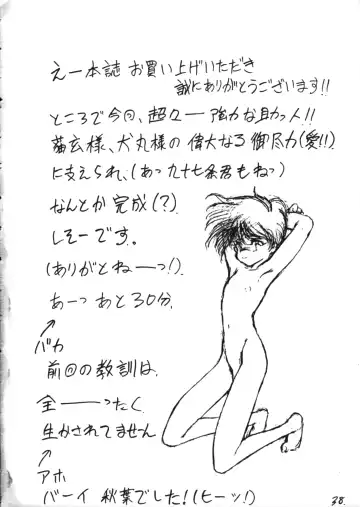 えー本誌 お買い上げいただき
誠にありがとうございます!!
ところで今回、超々ー強力な助っ人!!
菊玄様、犬丸様の偉大なる御尽力(愛!!)
に支えられ、(あっ九十七条君もねっ)
なんとか 完成(?)
しそーです。
(ありがとねーっ!)
あーっ あと30分
バカ
前回の教訓は
全――ったく
生かされてません
アホ
バーイ 秋葉でした!(ヒーッ!)
38